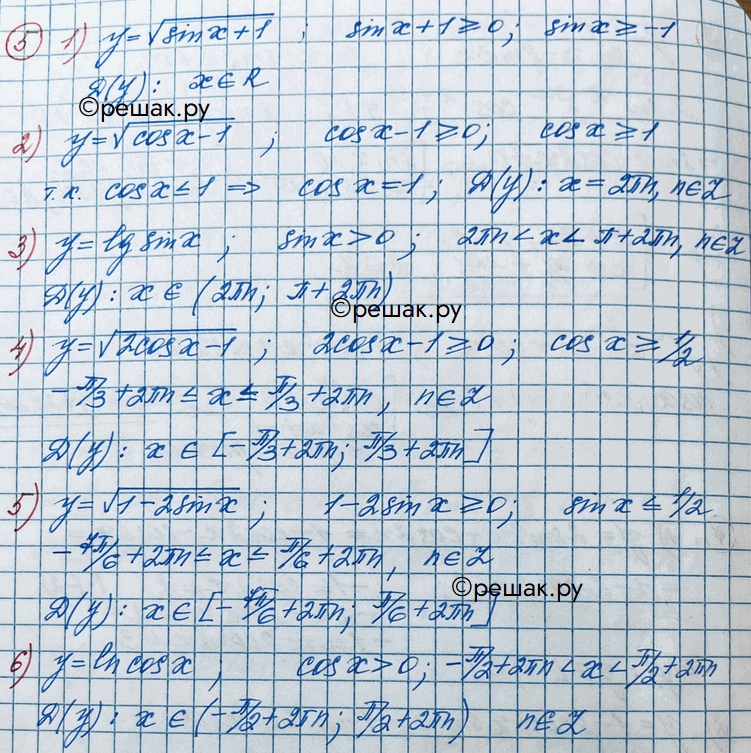 ⑤ 1) y=√(sinx+1) ; sinx+1≥0; sinx≥-1
D(y): x∈R
©решак.ру
2) y=√(cosx-1) ; cosx-1≥0; cosx≥1
т.к. cosx≤1 => cosx=1; D(y): x=2πn, n∈Z
3) y=lg sinx ; sinx>0 ; 2πn<x<π+2πn, n∈Z
D(y): x∈(2πn; π+2πn)
©решак.ру
4) y=√(2cosx-1) ; 2cosx-1≥0 ; cosx≥1/2
-π/3+2πn≤x≤π/3+2πn, n∈Z
D(y): x∈[-π/3+2πn; π/3+2πn]
5) y=√(1-2sinx) ; 1-2sinx≥0; sinx≤1/2
-7π/6+2πn≤x≤π/6+2πn, n∈Z
©решак.ру
D(y): x∈[-7π/6+2πn; π/6+2πn]
6) y=ln cosx ; cosx>0; -π/2+2πn<x<π/2+2πn
D(y): x∈(-π/2+2πn; π/2+2πn) n∈Z